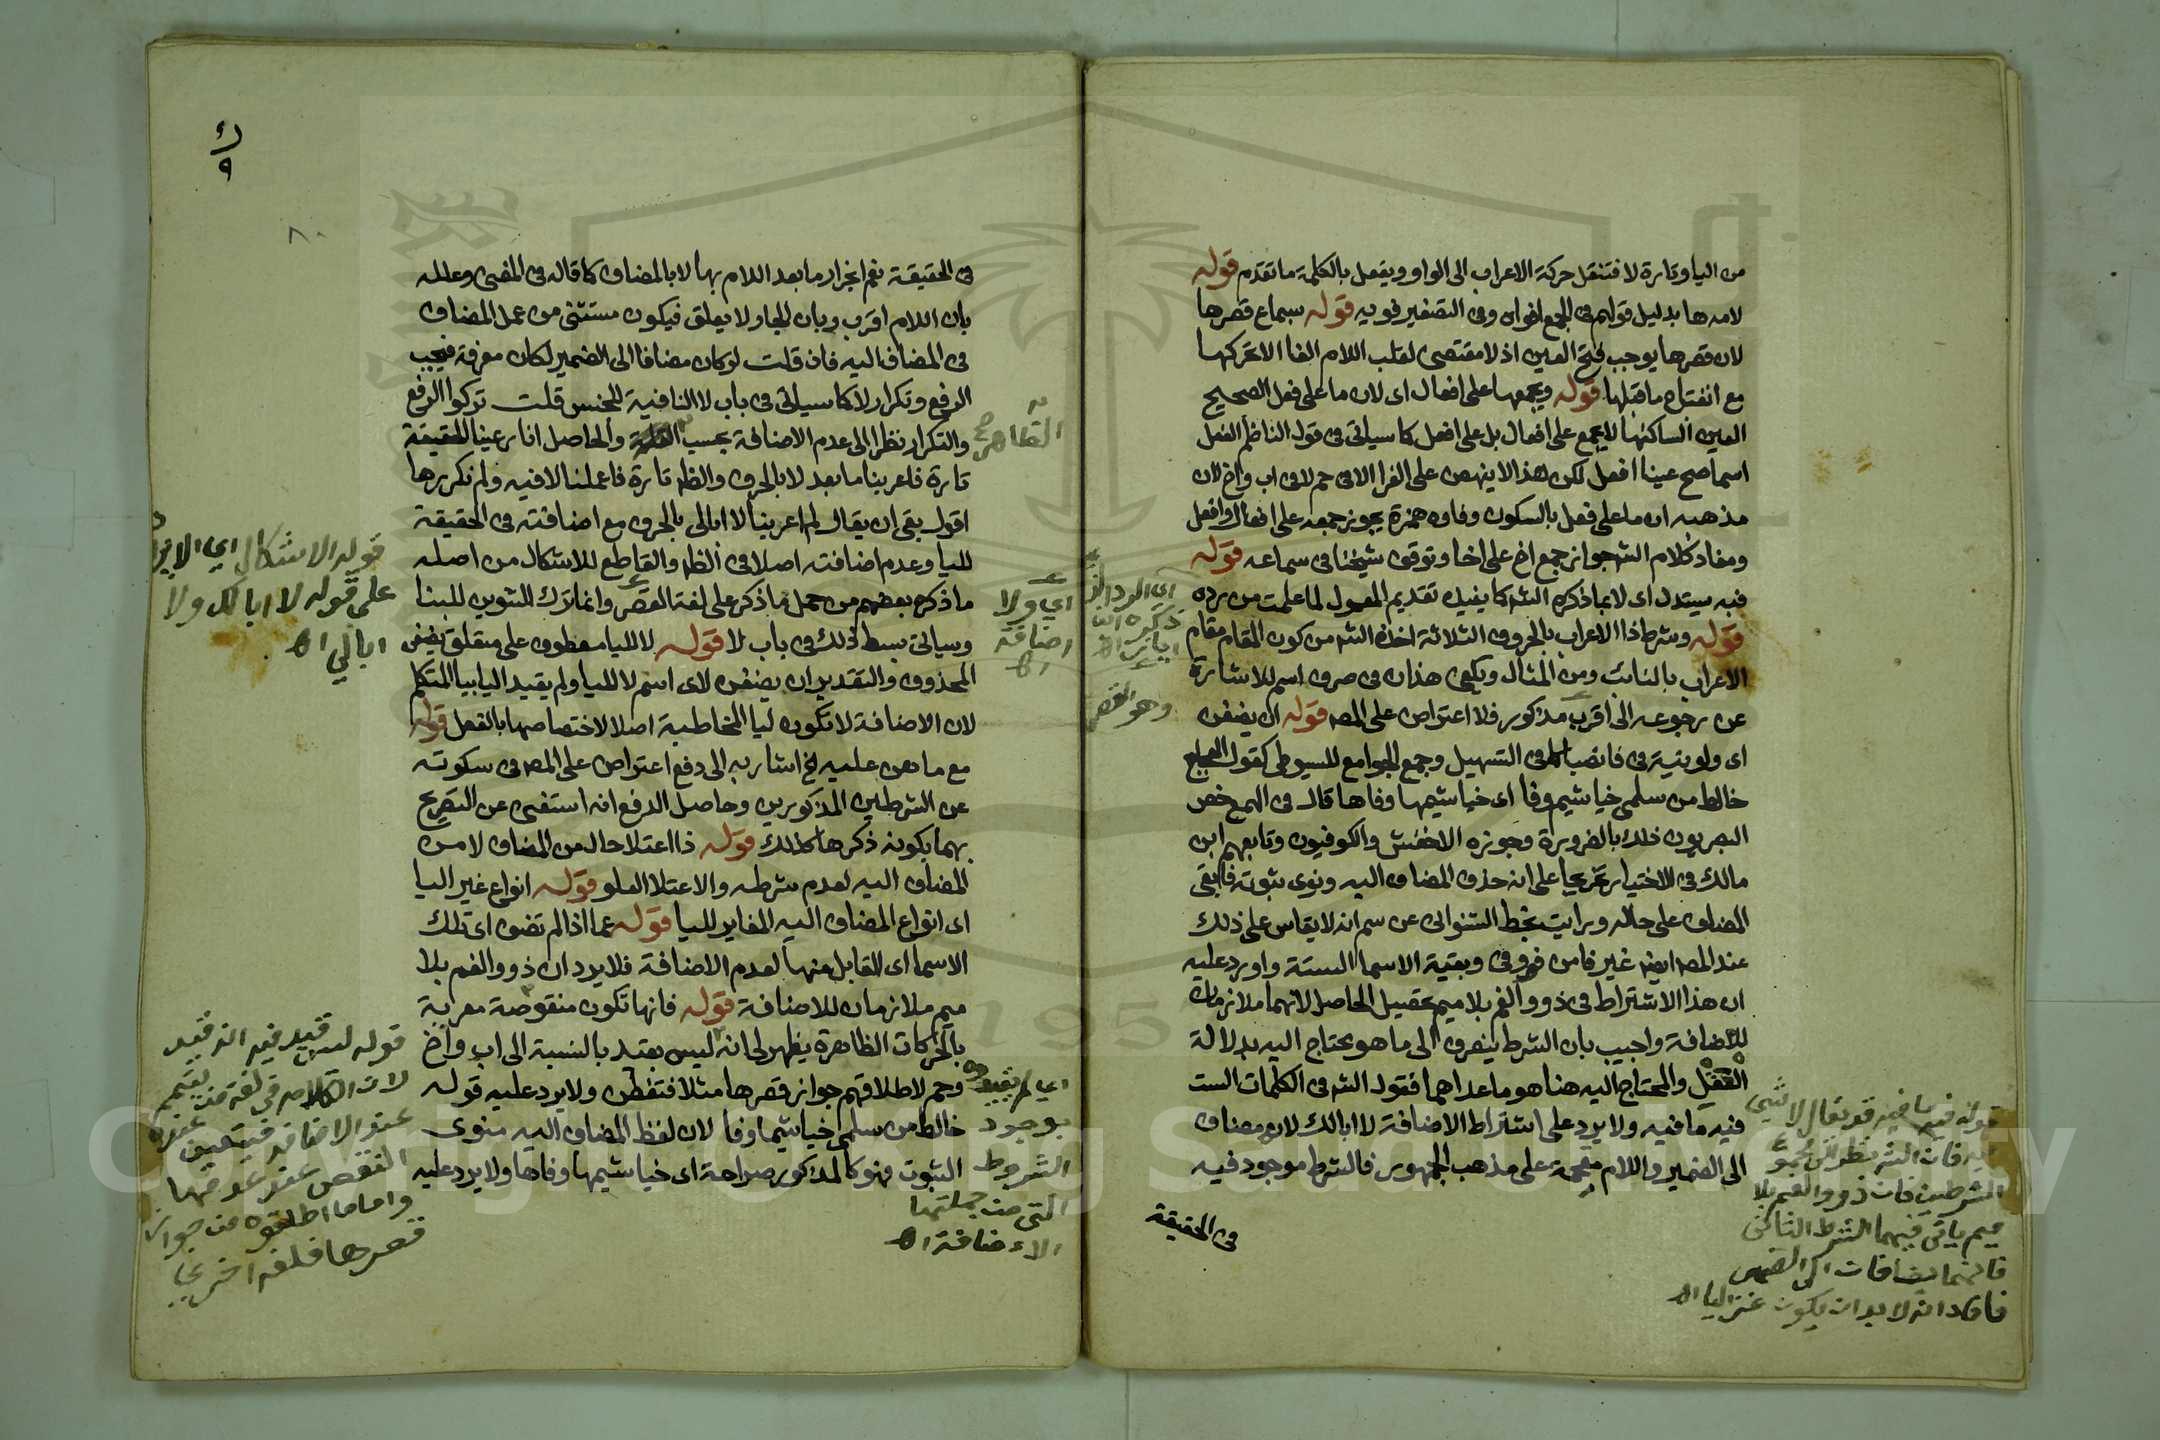 من الياء وتارة لا فتنقل حركة الاعراب الى الواو ويفعل بالكلمة ما تقدم قوله
لامه ها بدليل قولهم فى الجمع افواه وفى التصغير فويه قوله سماع قصرها
لان قصرها يوجب فتح العين اذ لا مقتضى لقلب اللام الفا الا تحركها
مع انفتاح ما قبلها قوله وبجمعها على افعال اى لان ما على فعل الصحيح
العين الساكنها لا يجمع على افعال بل على افعل كما سياتى فى قول الناظم لفعل
اسما صح عينا افعل لكن هذا لا ينهض على الفرا الا فى حم لا فى اب واخ لان
مذهبه ان ما على فعل بالسكون وفاوه همزة يجوز جمعه على افعال وافعل
ومفاد كلام الشـ جواز جمع اخ على اخا وتوقف شيخنا فى سماعه قوله
فبه يستدل اى لا بما ذكره الشـ كما يفيده تقديم المعمول لما علمت من رده
قوله وشرط ذا الاعراب بالحروف الثلاثة اخذه الشـ من كون المقام مقام
الاعراب بالنائب ومن المثال ويكفى هذان فى صرف اسم الاشارة
عن رجوعه الى اقرب مذكور فلا اعتراض على المصـ قوله ان يضفن
اى ولو بنية فى فا نصبا كما فى التسهيل وجمع الجوامع للسيوطى كقول العجاج
خالط من سلمى خياشيم وفا اى خياشيمها وفاها قال فى الهمع خص
البصريون ذلك بالضرورة وجوزه الاخفش والكوفيون وتابعهم ابن
مالك فى الاختيار تخريجا على انه حذف المضاف اليه ونوى ثبوته فابقى
المضاف على حاله ورايت بخط الشنوانى عن سم انه لا يقاس على ذلك
عند المصـ ايضا غير فا من فو وفى وبقية الاسما الستة واورد عليه
ان هذا الاشتراط فى ذو والفم بلا ميم تحصيل الحاصل لانهما ملازمان
للاضافة واجيب بان الشرط ينصرف الى ما هو محتاج اليه بدلالة
العقل والمحتاج اليه هنا هو ما عداهما فقول الشـ فى الكلمات الست
فيه ما فيه ولا يرد على اشتراط الاضافة لا ابا لك لانه مضاف
الى الضمير واللام مقحمة على مذهب الجمهور فالشرط موجود فيه
فى الحقيقة
اى الرد الذى
ذكره الشـ
وهو القصر
قوله فيه ما فيه قد يقال لا شى
فيه فان الشـ نظر الى مجموع
الشرطين فان ذو والفم بلا
ميم ياتى فيهما الشرط الثانى
فانهما يضافان الى الضمير
فافاد انه لا بد ان يكون غير اليا اهـ
٩
٨٠
فى الحقيقة نعم انجرار ما بعد اللام بها لا بالمضاف كما قاله فى المغنى وعلله
بان اللام اقرب وبان الجار لا يعلق فيكون مستثنى من عمل المضاف
فى المضاف اليه فان قلت لو كان مضافا الى الضمير لكان معرفة فيجب
الرفع وتكرار لا كما سياتى فى باب لا النافية للجنس قلت تركوا الرفع
والتكرار نظرا الى عدم الاضافة بحسب والحاصل انا راعينا الحقيقة
تارة فاعربنا ما بعد لا بالحرف والظا تارة فاعملنا لا فيه ولم نكررها
اقول بقى ان يقال لم اعربنا لا ابا لى بالحرف مع اضافته فى الحقيقة
لليا وعدم اضافته اصلا فى الظا والقاطع للاشكال من اصله
ما ذكره بعضهم من حمل ما ذكر على لغة القصر وانما ترك التنوين للبنا
وسياتى بسط ذلك فى باب لا قوله لا لليا معطوف على متعلق يضفن
المحذوف والتقدير ان يضفن لاى اسم لا لليا ولم يقيد اليا بيا المتكلم
لان الاضافة لا تكون ليا المخاطبة اصلا لاختصاصها بالفعل قوله
مع ما هن عليه الخ اشار به الى دفع اعتراض على المصـ فى سكوته
عن الشرطين المذكورين وحاصل الدفع انه استغنى عن التصريح
بهما بكونه ذكرها كذلك قوله ذا اعتلا حال من المضاف لا من
المضاف اليه لعدم شرطه والاعتلا العلو قوله انواع غير اليا
اى انواع المضاف اليه المغاير لليا قوله عما اذا لم تضف اى تلك
الاسما اى القابل منها لعدم الاضافة فلا يرد ان ذو والفم بلا
ميم ملازمان للاضافة قوله فانها تكون منقوصة معربة
بالحركات الظاهرة يظهر لى انه ليس بقيد بالنسبة الى اب واخ
وحم لاطلاقهم جواز قصرها مثلا فتفطن ولا يرد عليه قوله
خالط من سلمى خياشيم وفا لان لفظ المضاف اليه منوى
الثبوت فهو كالمذكور صراحة اى خياشيمها وفاها ولا يرد عليه
الظاهر صح
اى ولا
اضافة
اهـ
قوله الاشكال اى
على قوله لا ابا لك ولا
ابا لى اهـ
بوجود
الشروط
التى من جملتها
الاضافة اهـ
قوله ليس بقيد فيه انه قيد
لان الكلام فى لغة من
عند الاضافة فيتعين عنده
النقص عند عدمها
واما ما اطلقوه من جواز
قصرها فلغة اخرى